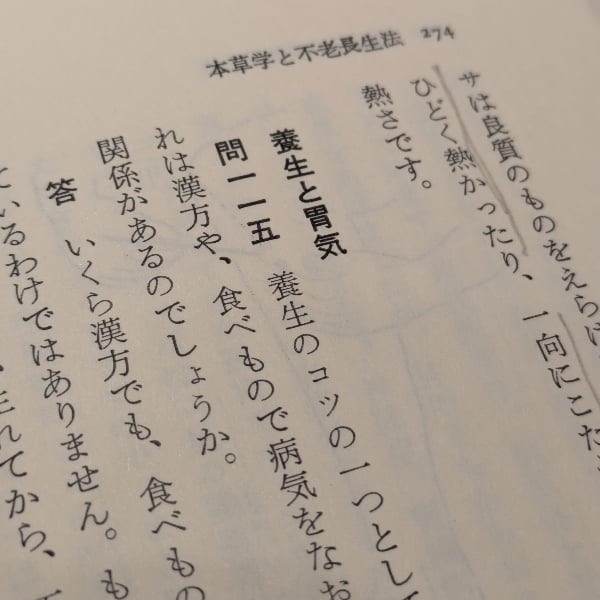 本草学と不老長生法 274
サは良質のものをえらば
ひどく熱かったり、一向にこた
熱さです。
養生と胃気
問一一五 養生のコツの一つとして
れは漢方や、食べもので病気をなお
関係があるのでしょうか。
答 いくら漢方でも、食べもの
ているわけではありません。も
生れてから、